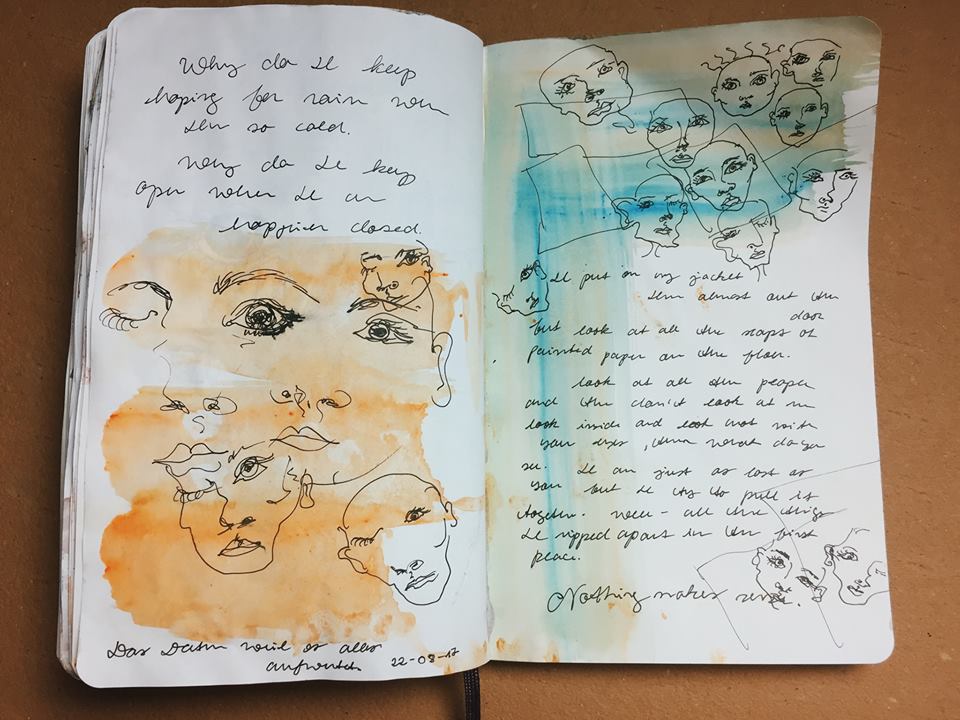 Why do I keep
hoping for rain when
I'm so cold.
Why do I keep
open when I am
happier closed.
Das Datum weil es alles
aufwertet 22-08-17
I put on my jacket
I'm almost out the
door
but look at all the scraps of
painted paper on the floor.
look at all the people
and they don't look at me
look inside and look not with
your eyes, then what do you
see. I am just as lost as
you but I try to pull it
together. well - all the things
I ripped apart in the first
place.
Nothing makes sense.